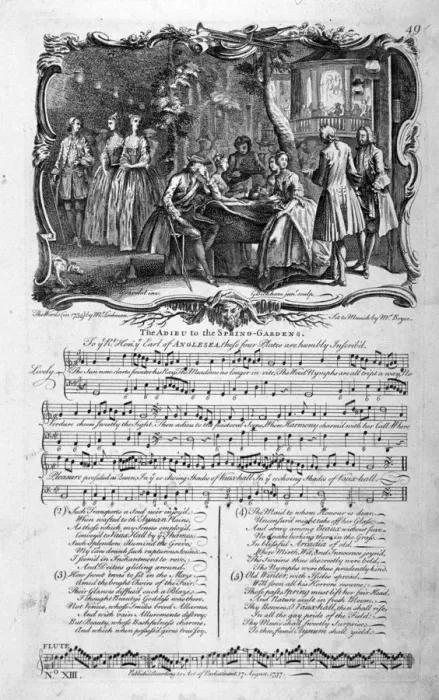 49
Gravelot inv.
G. Bickham jun.r sculp.
The Words (in 1734) by Mr. Lockman
Set to Musick by Mr. Boyce.
The ADIEU to the SPRING-GARDENS.
To ye Rt. Hon. ye Earl of ANGLESEA, these four Plates are humbly Inscrib'd.
Lively
The Sun now darts fainter his Ray, The Meadows no longer invite, The Wood Nymphs are all tript away, No
Verdure cheers sweetly the Sight. Then adieu to the pastoral Scene, When Harmony charm'd with her Call, Where
Pleasure presided as Queen, In ye ecchoing Shades of Vauxhall, In ye ecchoing Shades of Vauxhall.
(2) Such Transports a Soul ne'er injoy'd,
When wafted to th'
Plains,
As those which my Senses employ'd,
Convey'd to Vaux-Hall by ye Thames.
Such Splendors illumin'd the Grove,
My Ear drank such rapturous
I seem'd in Enchantment to rove,
And Deities gliding around.
(3) How sweet 'twas to sit in the Maze
the bright Choirs of the Fair;
Their Glances diffus'd such a Blaze,
I thought Beauty's Goddess was there.
Not Venus, whose Smiles breed Allarms,
And with vain Allurements destroy;
But Beauty, whose Bashfulness charms,
And which when possess'd gives true Joy.
(4) The Maid to whom Honour is dear,
Uncensur'd might take off her Glass;
And stray among Beaus without fear,
No Snake lurking there in the Grass.
In blissful Arcadia of old
Where Mirth, Wit, and Innocence joyn'd,
The Swains thus discreetly were bold,
The Nymphs were thus prudently kind.
(5) Old Winter, with Icicles spread,
Will soon all his Horrors
These past, Spring must lift her fair Head,
And Nature exult in fresh Bloom:
Thy Beauties, O Vauxhall, then shall rise,
In all the gay pride of the Field:
Thy Musick shall sweetly surprize;
To thee, fam'd
shall yield.
FLUTE
No. XIII.
Publish'd according to Act of Parliament, 17 August, 1737.